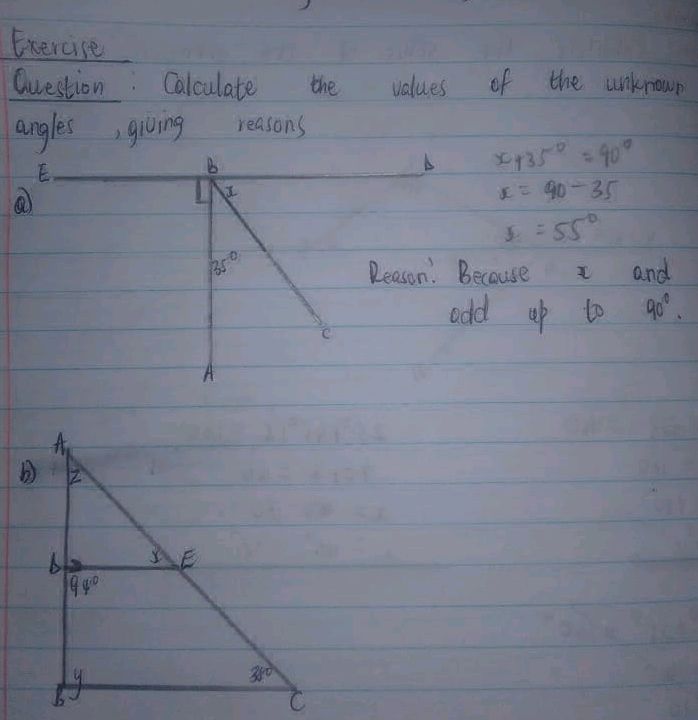 Exercise
Question : Calculate the values of the unknown
angles , giving reasons
a)
E B D
x
35°
C
A
x+35° = 90°
x = 90 - 35
x = 55°
Reason: Because x and
add up to 90°.
b)
A
z
D x E
94°
y 38°
B C